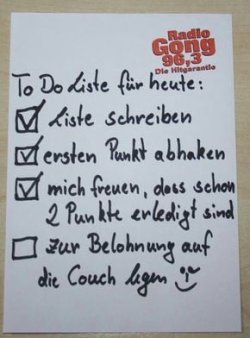 Radio
Gong
96,3
Die Hitgarantie
To Do Liste für heute:
Liste schreiben
ersten Punkt abhaken
mich freuen, dass schon
2 Punkte erledigt sind
Zur Belohnung auf
die Couch legen